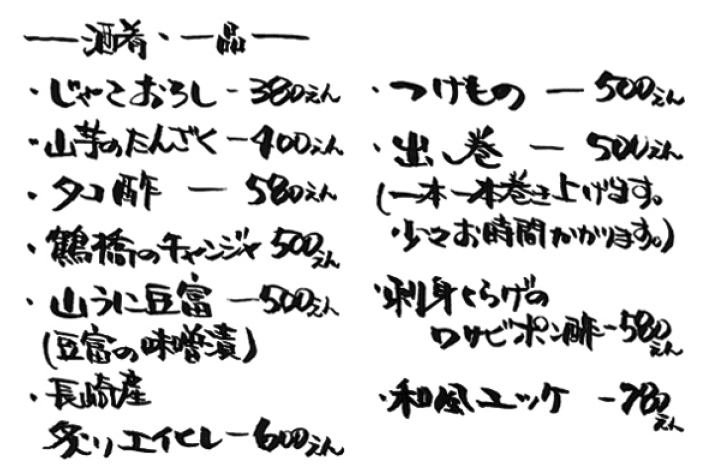 酒肴・一品
・じゃこおろし - 380えん
・山芋のたんざく - 400えん
・タコ酢 - 580えん
・鶴橋のチャンジャ 500えん
・山うに豆富 - 500えん
(豆富の味噌漬)
・長崎産
炙りエイヒレ - 600えん
・つけもの - 500えん
・出し巻 - 500えん
(一本一本巻き上げます。
少々お時間かかります。)
・刺身くらげの
ワサビポン酢 - 580えん
・和風ユッケ - 780えん